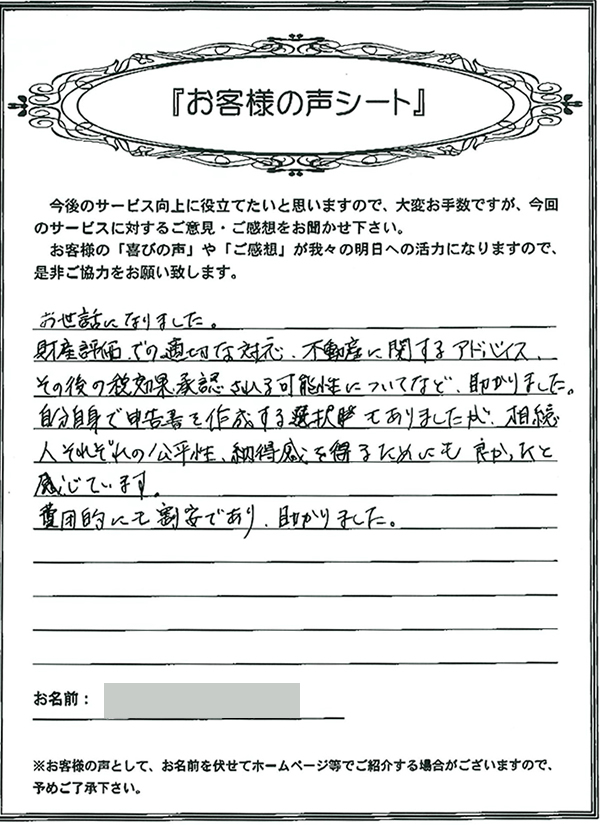 『お客様の声シート』
今後のサービス向上に役立てたいと思いますので、大変お手数ですが、今回
のサービスに対するご意見・ご感想をお聞かせ下さい。
お客様の「喜びの声」や「ご感想」が我々の明日への活力になりますので、
是非ご協力をお願い致します。
お世話になりました。
財産評価での適切な対応、不動産に関するアドバイス、
その後の税効果承認される可能性についてなど、助かりました。
自分自身で申告書を作成する選択肢もありましたが、相続
人それぞれの公平性、納得感を得るためにも良かったと
感じています。
費用的にも割安であり、助かりました。
お名前：
※お客様の声として、お名前を伏せてホームページ等でご紹介する場合がございますので、
予めご了承下さい。